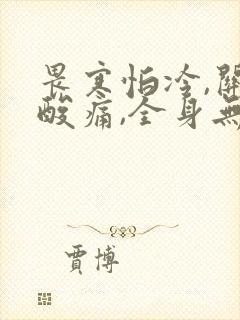 畏寒怕冷,關
酸痛,全身無
賈博